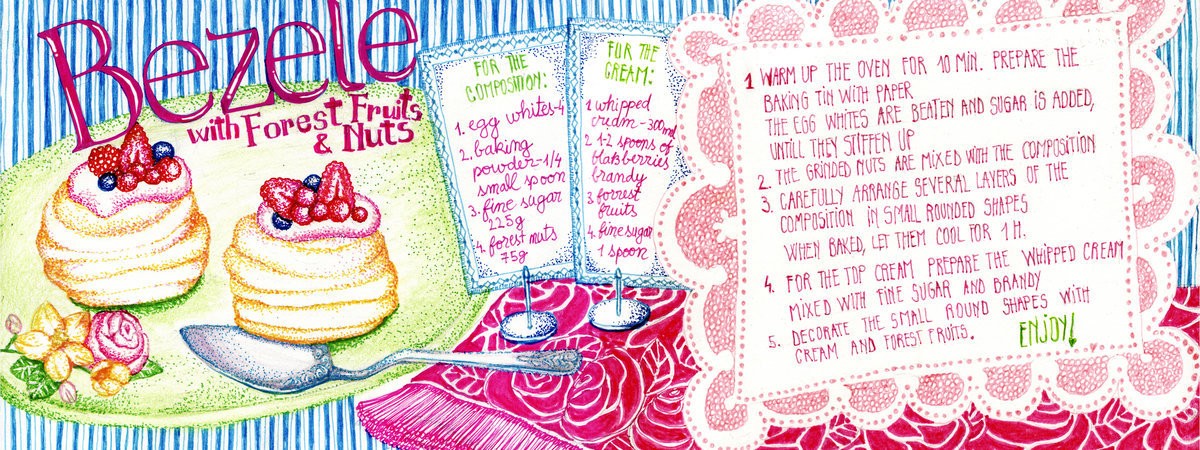 Bezele
with Forest Fruits
& Nuts
FOR THE
COMPOSITION:
1. egg whites-4
2. baking
powder-1/4
small spoon
3. fine sugar
225g
4. forest nuts
75g
FUR THE
CREAM:
1 whipped
cream-300ml
2. 1-2 spoons of
blabberries
brandy
3 forrest
fruits
4. fine sugar
1 spoon
1 WARM UP THE OVEN FOR 10 MIN. PREPARE THE
BAKING TIN WITH PAPER
THE EGG WHITES ARE BEATEN AND SUGAR IS ADDED,
UNTILL THEY STIFFEN UP
2. THE GRINDED NUTS ARE MIXED WITH THE COMPOSITION
3. CAREFULLY ARRANGE SEVERAL LAYERS OF THE
COMPOSITION IN SMALL ROUNDED SHAPES
WHEN BAKED, LET THEM COOL FOR 1 H.
4. FOR THE TOP CREAM PREPARE THE WHIPPED CREAM
MIXED WITH FINE SUGAR AND BRANDY
5. DECORATE THE SMALL ROUND SHAPES WITH
CREAM AND FOREST FRUITS.
ENJOY!